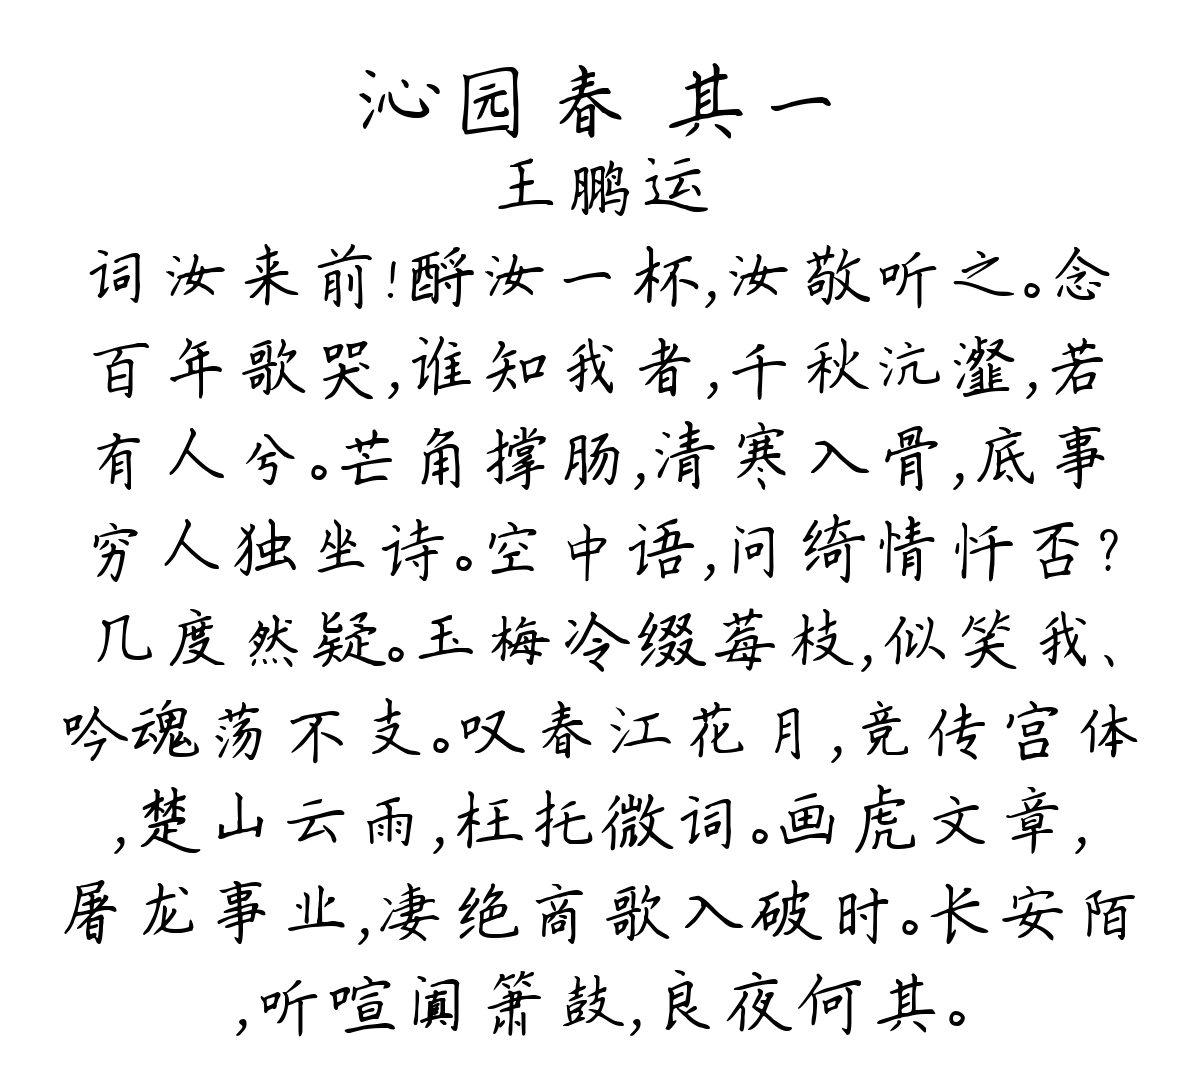 沁园春 其一
王鹏运
词汝来前!酹汝一杯,汝敬听之。念
百年歌哭,谁知我者,千秋沆瀣,若
有人兮。芒角撑肠,清寒入骨,底事
穷人独坐诗。空中语,问绮情忏否?
几度然疑。玉梅冷缀莓枝,似笑我、
吟魂荡不支。叹春江花月,竞传宫体
,楚山云雨,枉托微词。画虎文章,
屠龙事业,凄绝商歌入破时。长安陌
,听喧阗箫鼓,良夜何其。